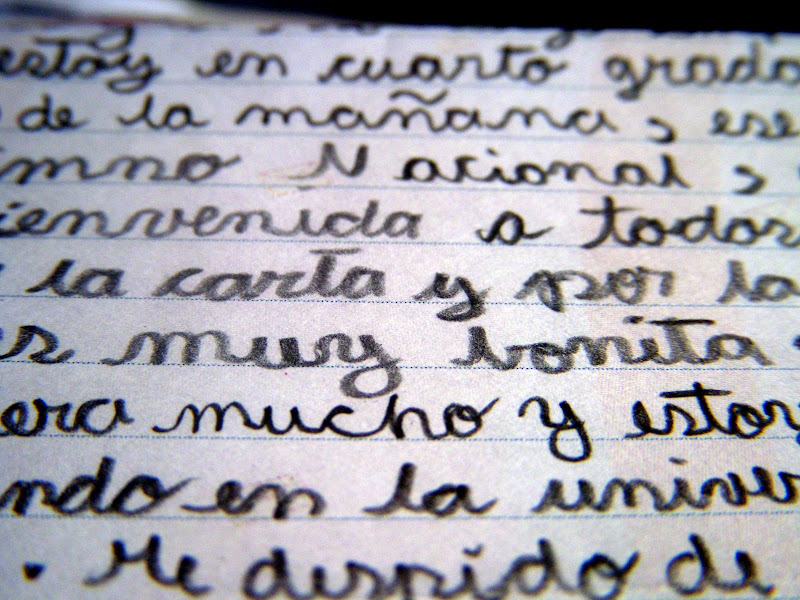 estoy en cuarto grado
de la mañana, ese
imno Nacional,
ienvenida a todos
la carta y por la
es muy bonita
era mucho y estoy
ndo en la univer
. Me despido de